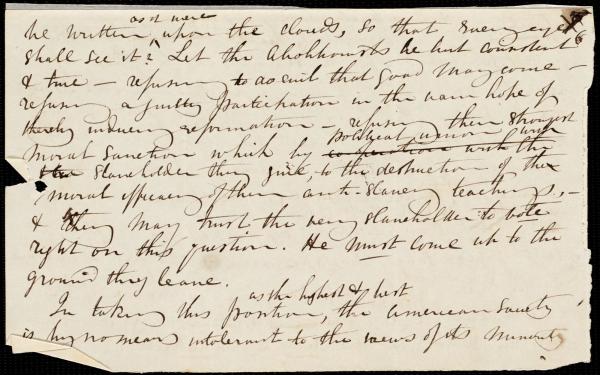 as it were
be written upon the clouds, so that every eye
shall see it? Let the Abolitionists be but consistent
& true — refusing to do evil that good may come —
refusing a guilty participation in the vain hope of
thereby inducing reformation — refusing their strongest
political union with
moral sanction which by cooperation with the
slaveholder they give, to the destruction of the
moral efficacy of their anti-slavery teachings, —
& they may trust the very slaveholder to vote
right on this question. He must come up to the
ground they leave.
as the highest & best
In taking this position, the American Society
is by no means intolerant to the views of its minority